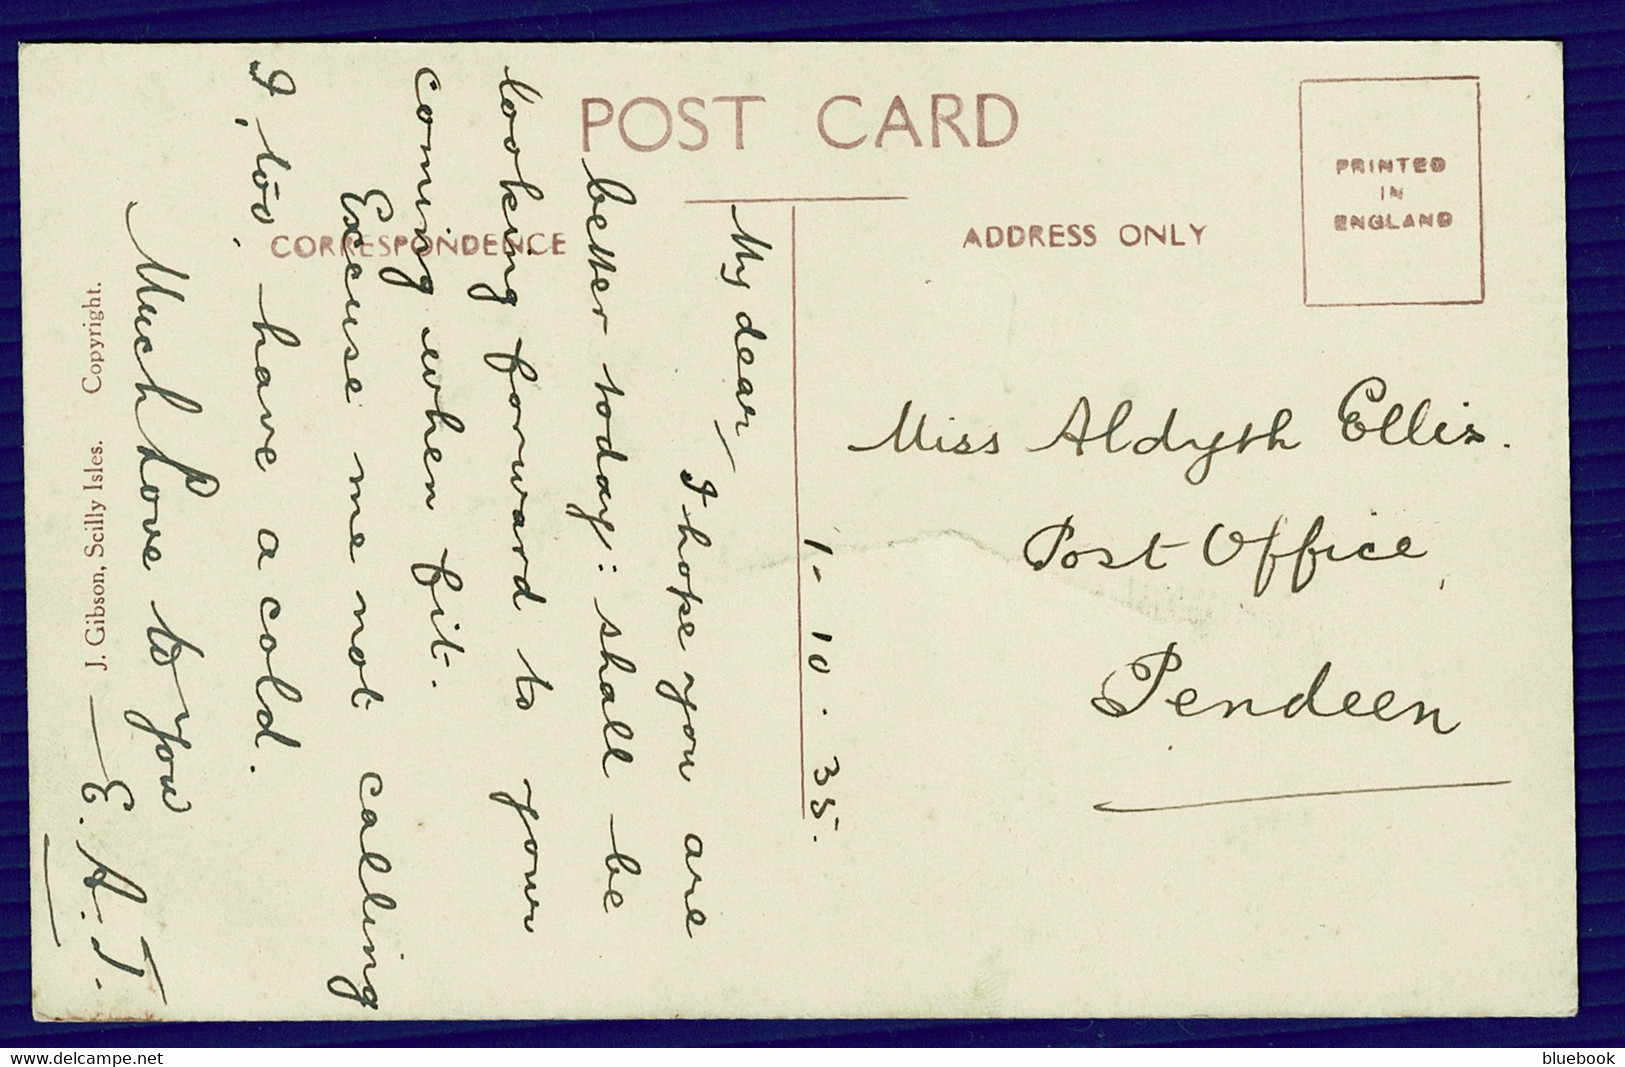 POST CARD
CORRESPONDENCE
ADDRESS ONLY
PRINTED
IN
ENGLAND
My dear,
I hope you are
better today: shall be
looking forward to your
coming when fit.
Excuse me not calling
I, too, have a cold.
Much Love to you
E. A. T.
J. Gibson, Scilly Isles. Copyright.
1-10.35.
Miss Aldyth Ellis.
Post Office,
Pendeen
delcampe.net
bluebook